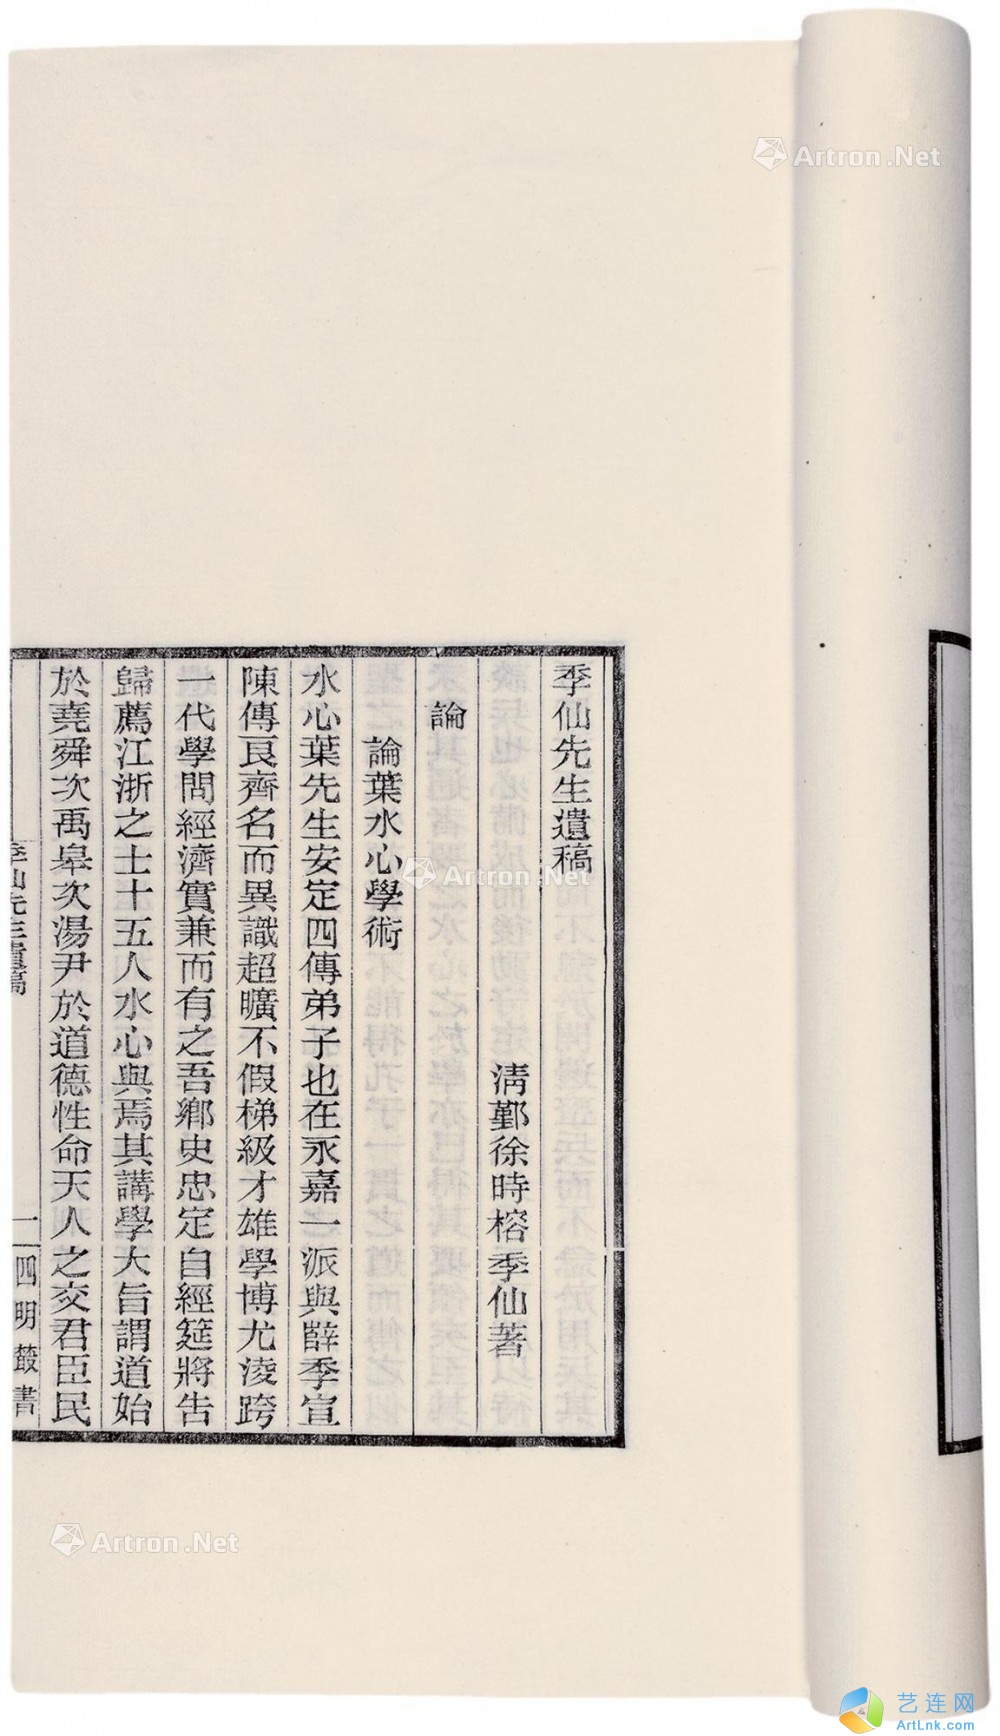 季仙先生遺稿
清鄞徐時榕季仙著
論
論葉水心學術
水心葉先生安定四傳弟子也在永嘉一派與薛季宣
陳傅良齊名而異識超曠不假梯級才雄學博尤淩跨
一代學問經濟實兼而有之吾鄉史忠定自經筵將告
歸薦江浙之士十五人水心與焉其講學大旨謂道始
於堯舜次禹皋次湯尹於道德性命天人之交君臣民
季仙先生遺稿
一
四明叢書
Artron.Net
Artron.Net
Artron.Net
艺连网
ArtLnk.com